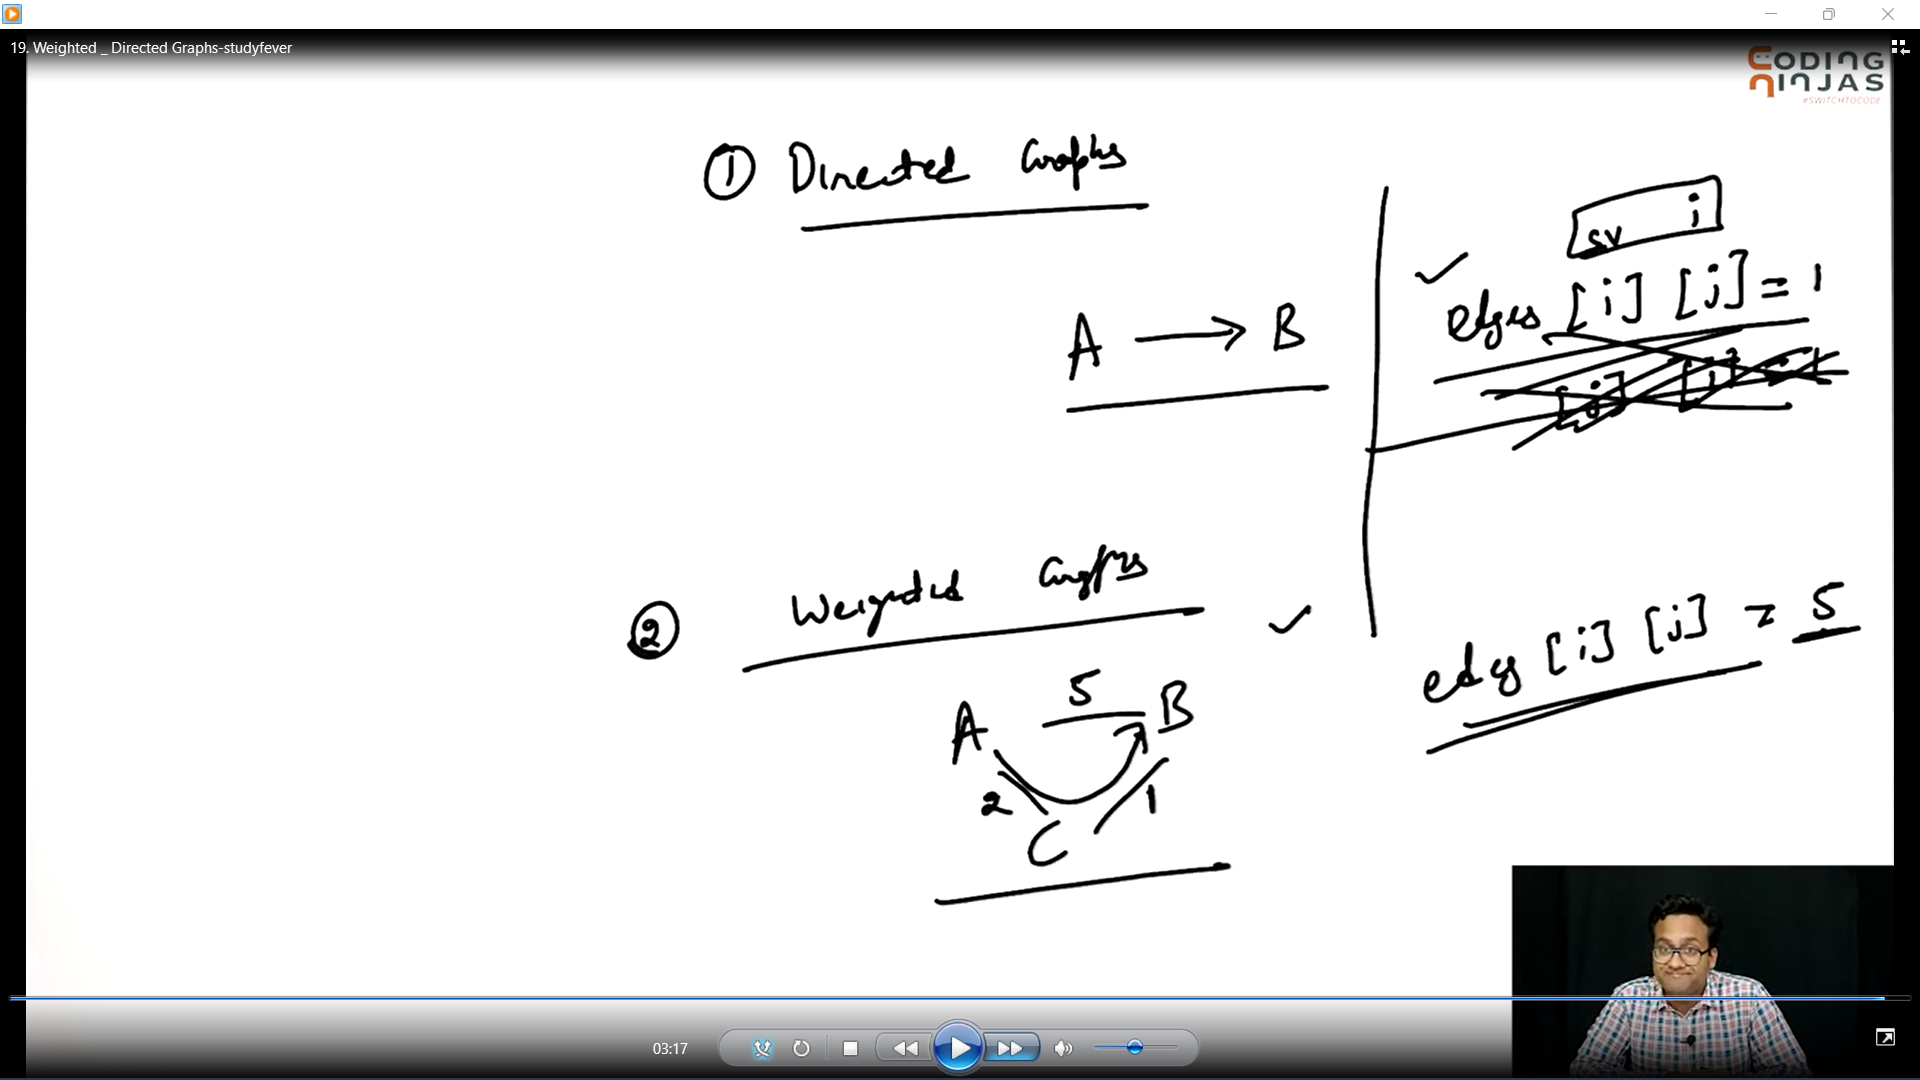 19. Weighted _ Directed Graphs-studyfever
CODING
NINJAS
#SWITCHTOCODE
① Directed Graphs
A → B
sv i
✓ edges [i] [j] = 1
[j] [i] = 1
② Weighted Graphs ✓
A 5 B
2 1
C
edges [i] [j] = 5
03:17